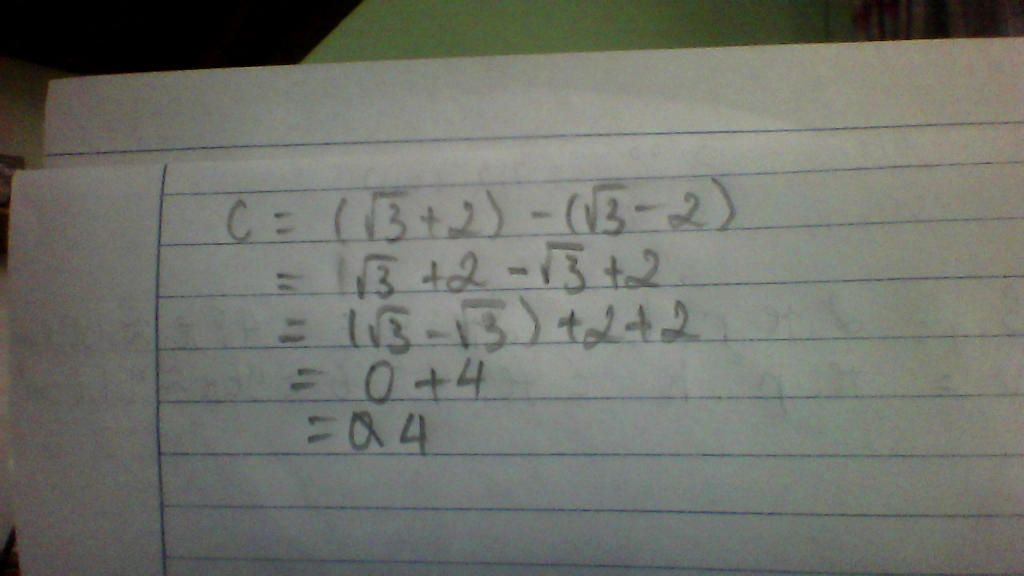 C = (√3 + 2) - (√3 - 2)
= √3 + 2 - √3 + 2
= (√3 - √3) + 2 + 2
= 0 + 4
= 4